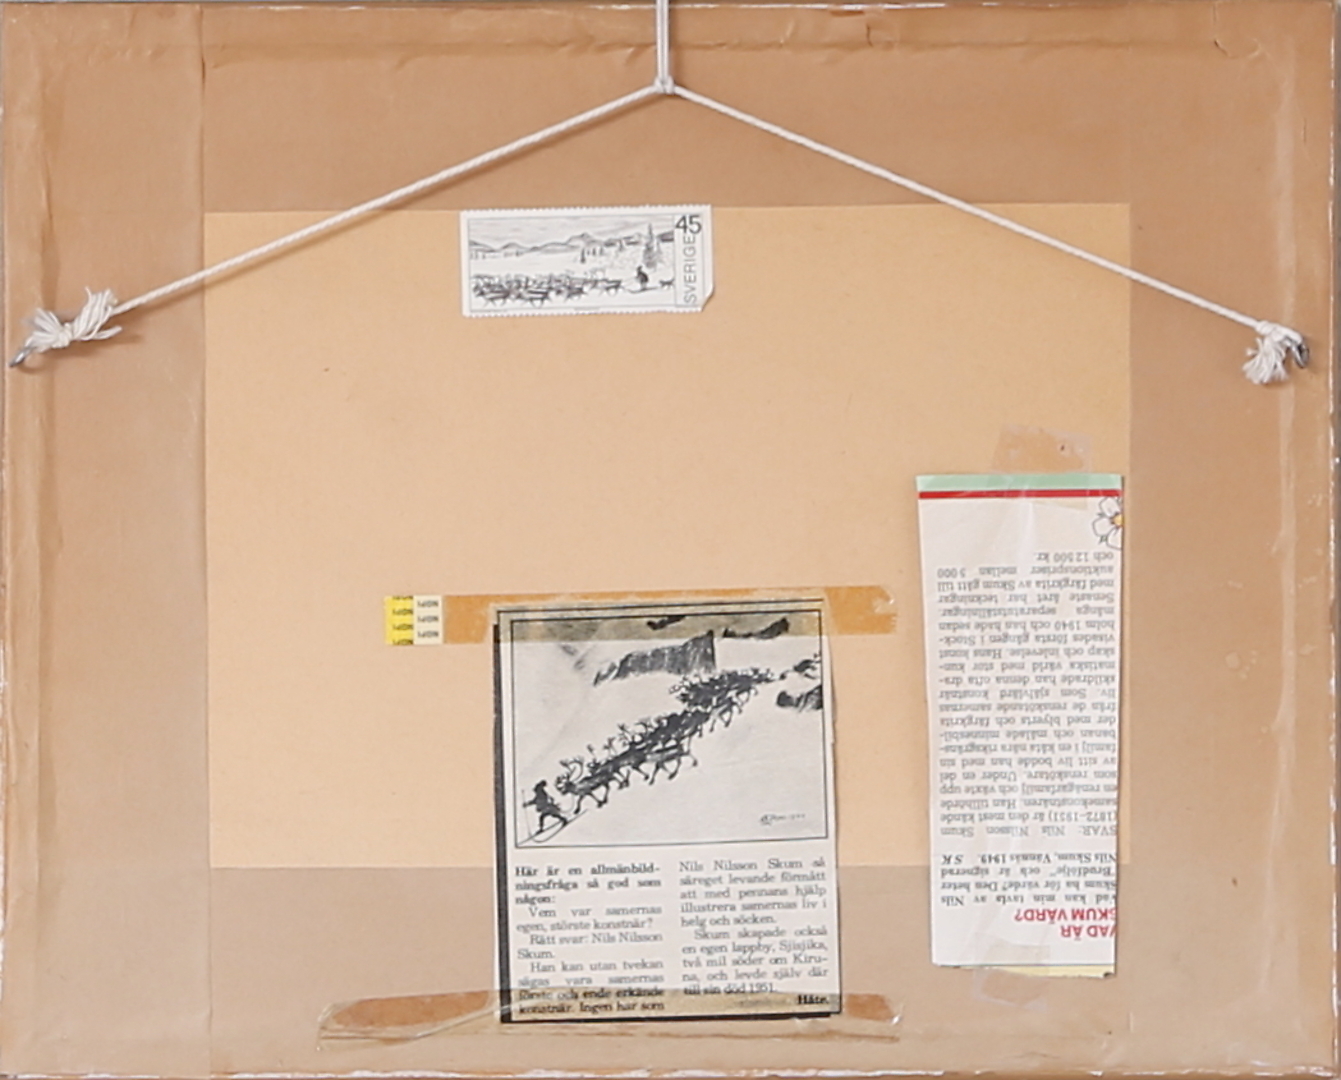 45
SVERIGE
NOPI NOPI
NOPI NOPI
NOPI NOPI
NOPI NOPI
Här är en allmänbild-
ningsfråga så god som
någon:
Vem var samernas
egen, störste konstnär?
Rätt svar: Nils Nilsson
Skum.
Han kan utan tvekan
sägas vara samernas
förste och ende erkände
konstnär. Ingen har som
Nils Nilsson Skum så
säreget levande förmått
att med pennans hjälp
illustrera samernas liv i
helg och söcken.
Skum skapade också
en egen lappby, Sjisjika,
två mil söder om Kiru-
na, och levde själv där
till sin död 1951.
Håte.
VAD ÄR
SKUM VÄRD?
Vad kan min tavla av Nils
Skum ha för värde? Den heter
"Brudfölje" och är signerad
Nils Skum, Vännäs 1949. SK
SVAR: Nils Nilsson Skum
(1872–1951) är den mest kände
samekonstnären. Han tillhörde
en renägarfamilj och växte upp
som renskötare. Under en del
av sitt liv bodde han med sin
familj i en kåta nära riksgräns-
banan och målade minnesbil-
der med blyerts och färgkrita
från de renskötande samernas
liv. Som självlärd konstnär
skildrade han denna ofta dra-
matiska värld med stor kun-
skap och inlevelse. Hans konst
visades första gången i Stock-
holm 1940 och han hade sedan
många separatutställningar.
Senaste året har teckningar
med färgkrita av Skum gått till
auktionspriser mellan 5 000
och 12 500 kr.